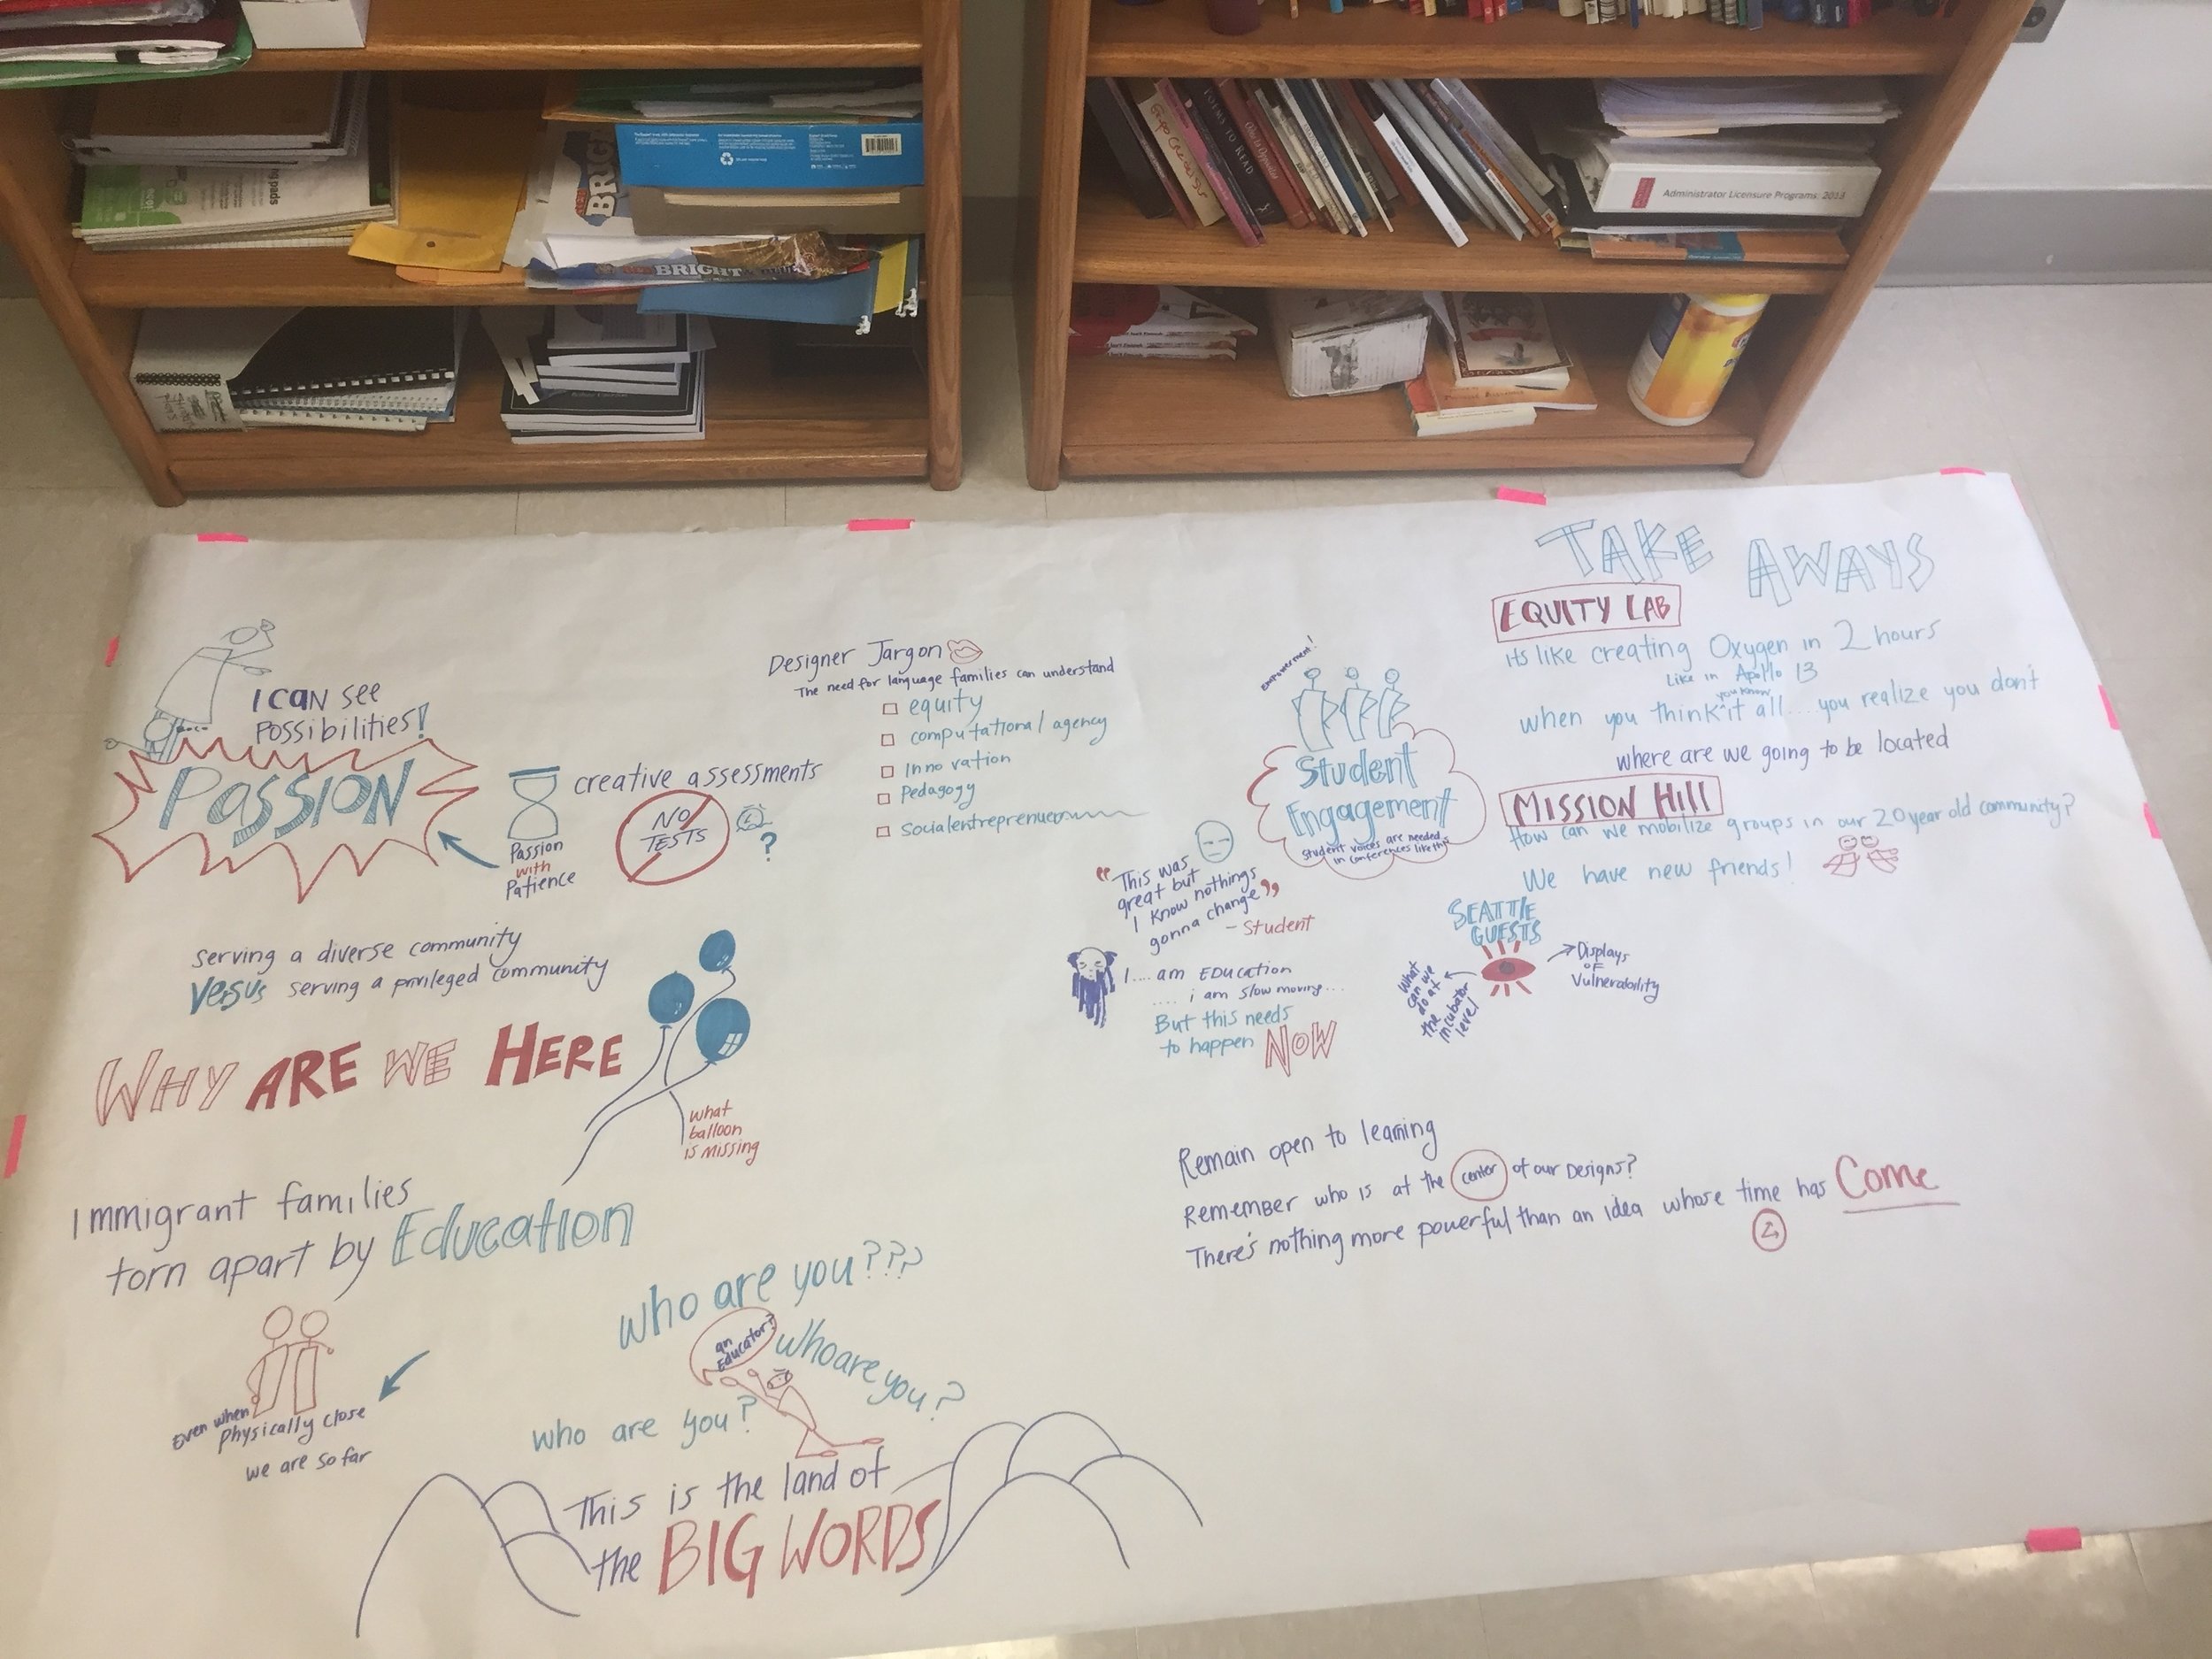 BRIGHT
POEMS TO READ
Administrator Licensure Programs: 2013
I CAN SEE
POSSIBILITIES!
PASSION
Passion
with
Patience
creative assessments
NO
TESTS
?
serving a diverse community
Versus serving a privileged community
WHY ARE WE HERE
what
balloon
is missing
Immigrant families
torn apart by Education
even when
physically close
we are so far
who are you???
an
Educator?
who are you?
who are you?
This is the land of
the BIG WORDS
Designer Jargon
The need for language families can understand
equity
computational agency
Innovation
Pedagogy
Socialentreprenuer
Empowerment!
Student
Engagement
Student voices are needed
in conferences like this
"This was
great but
I know nothings
gonna change"
- Student
I.... am EDUCATION
.... i am slow moving...
But this needs
to happen NOW
TAKE AWAYS
EQUITY LAB
its like creating Oxygen in 2 hours
Like in Apollo 13
when you think you know it all.... you realize you don't
where are we going to be located
MISSION HILL
How can we mobilize groups in our 20 year old community?
We have new friends!
SEATTLE
GUESTS
What
can we
do at
the
incubator
level
Displays
OF
Vulnerability
Remain open to learning
Remember who is at the center of our Designs?
There's nothing more powerful than an idea whose time has Come